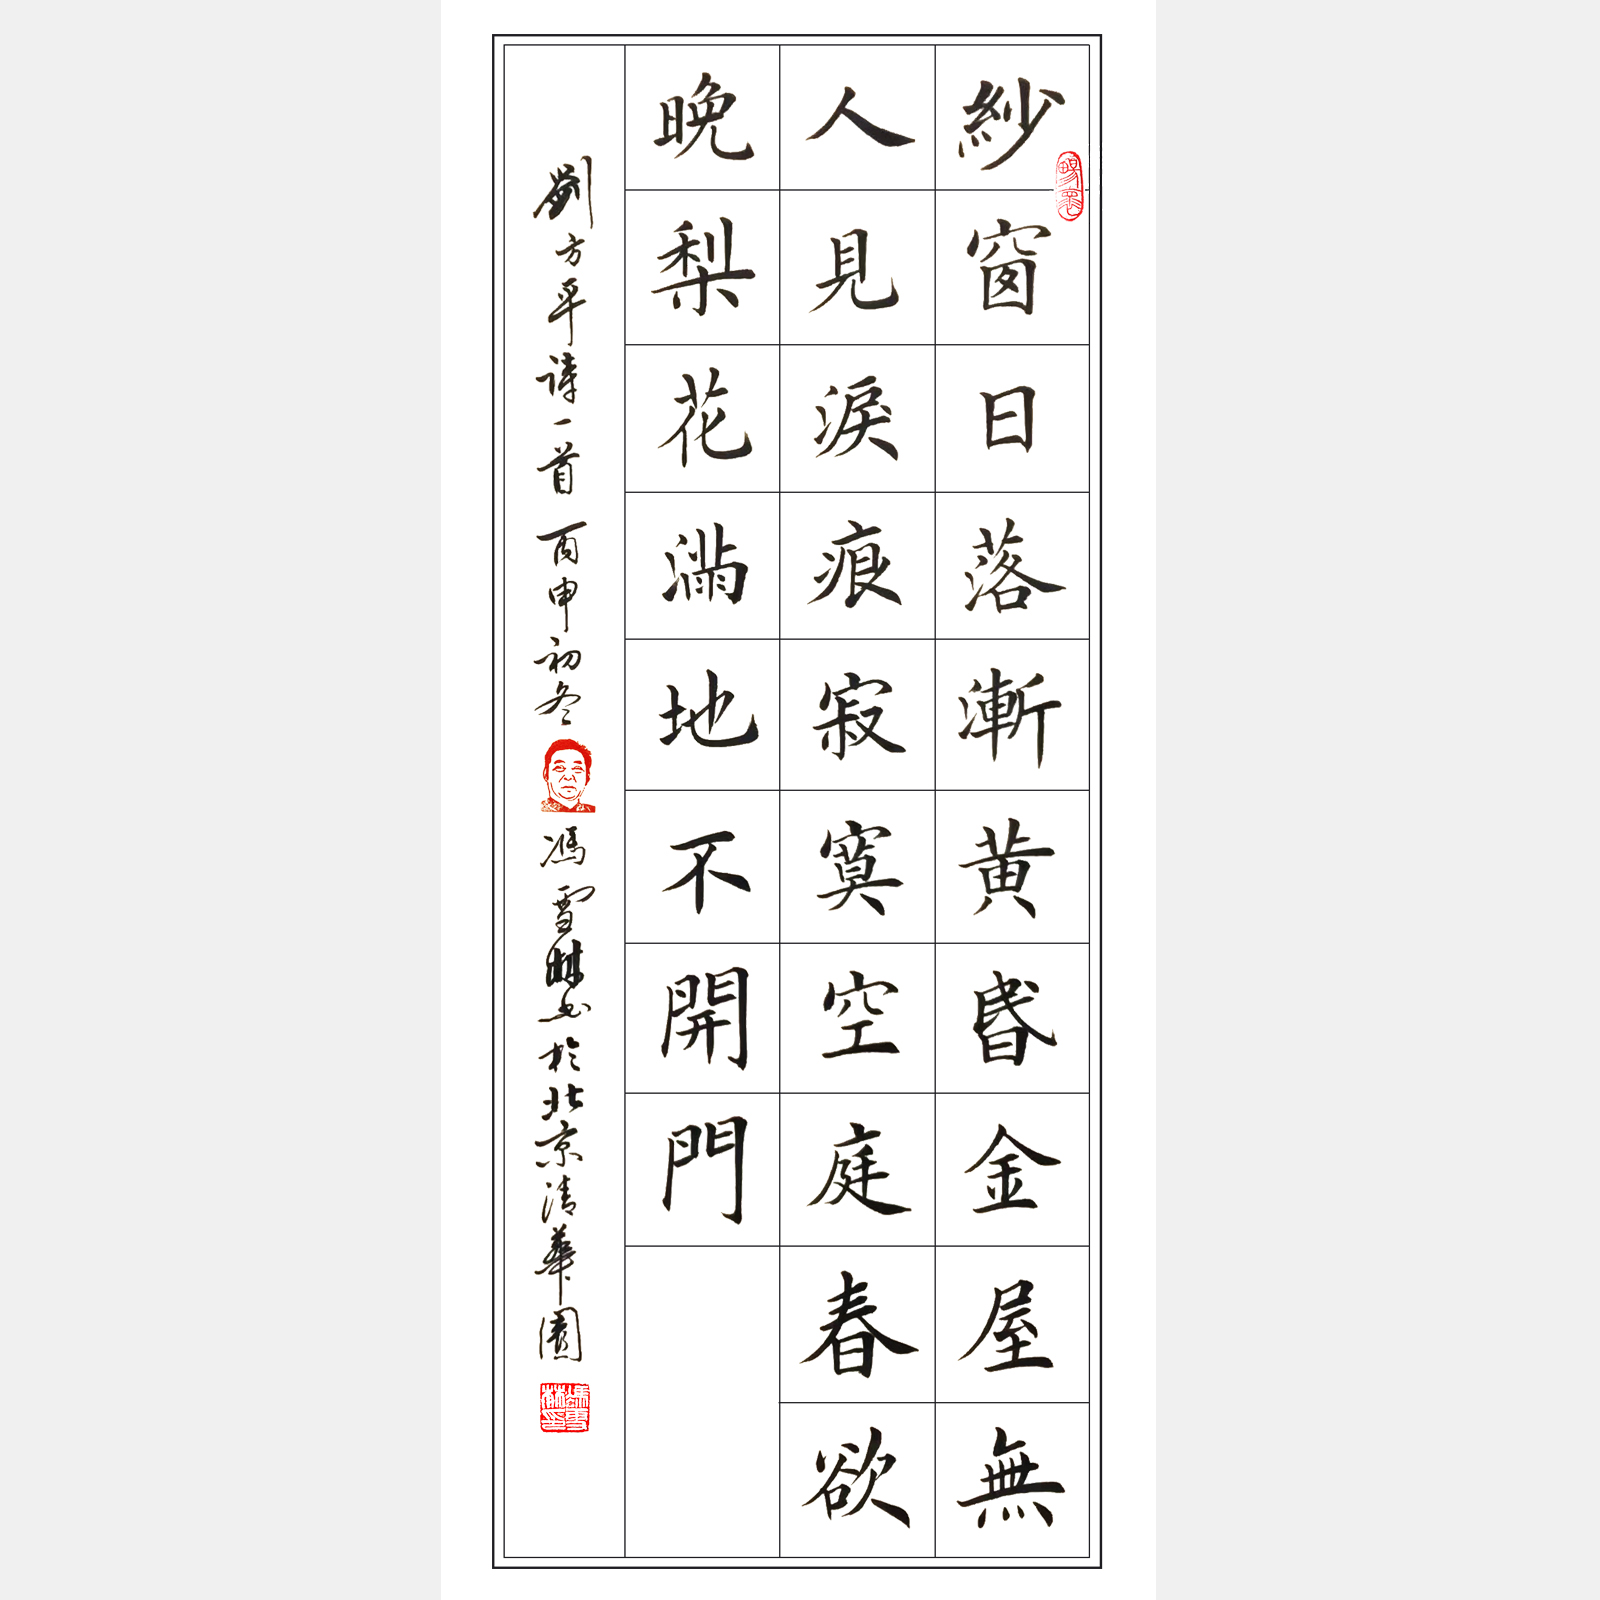 紗窗日落漸黄昬金屋無
人見淚痕寂寞空庭春欲
晚梨花滿地不開門
劉方平诗一首 丙申初冬 馮雪林书於北京清華園
馮雪林印